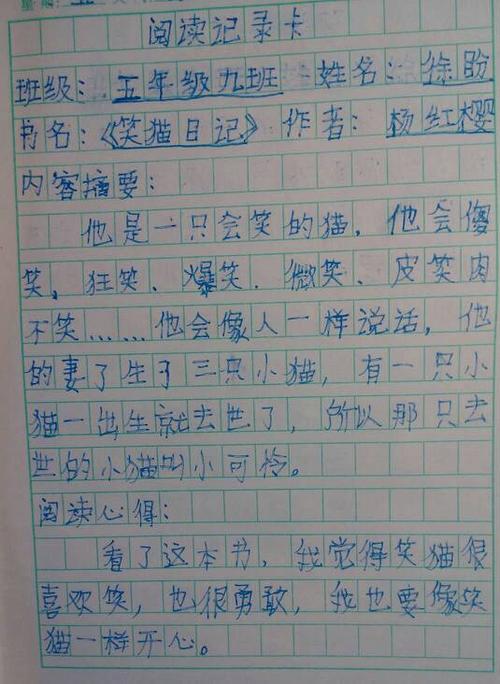 阅读记录卡
班级：五年级九班 姓名：徐盼
书名：《笑猫日记》 作者：杨红樱
内容摘要：
他是一只会笑的猫，他会傻
笑，狂笑、爆笑、微笑、皮笑肉
不笑……他会像人一样说话，他
的妻了生了三只小猫，有一只小
猫一出生就去世了，所以那只去
世的小猫叫小可怜。
阅读心得：
看了这本书，我觉得笑猫很
喜欢笑，也很勇敢，我也要像笑
猫一样开心。